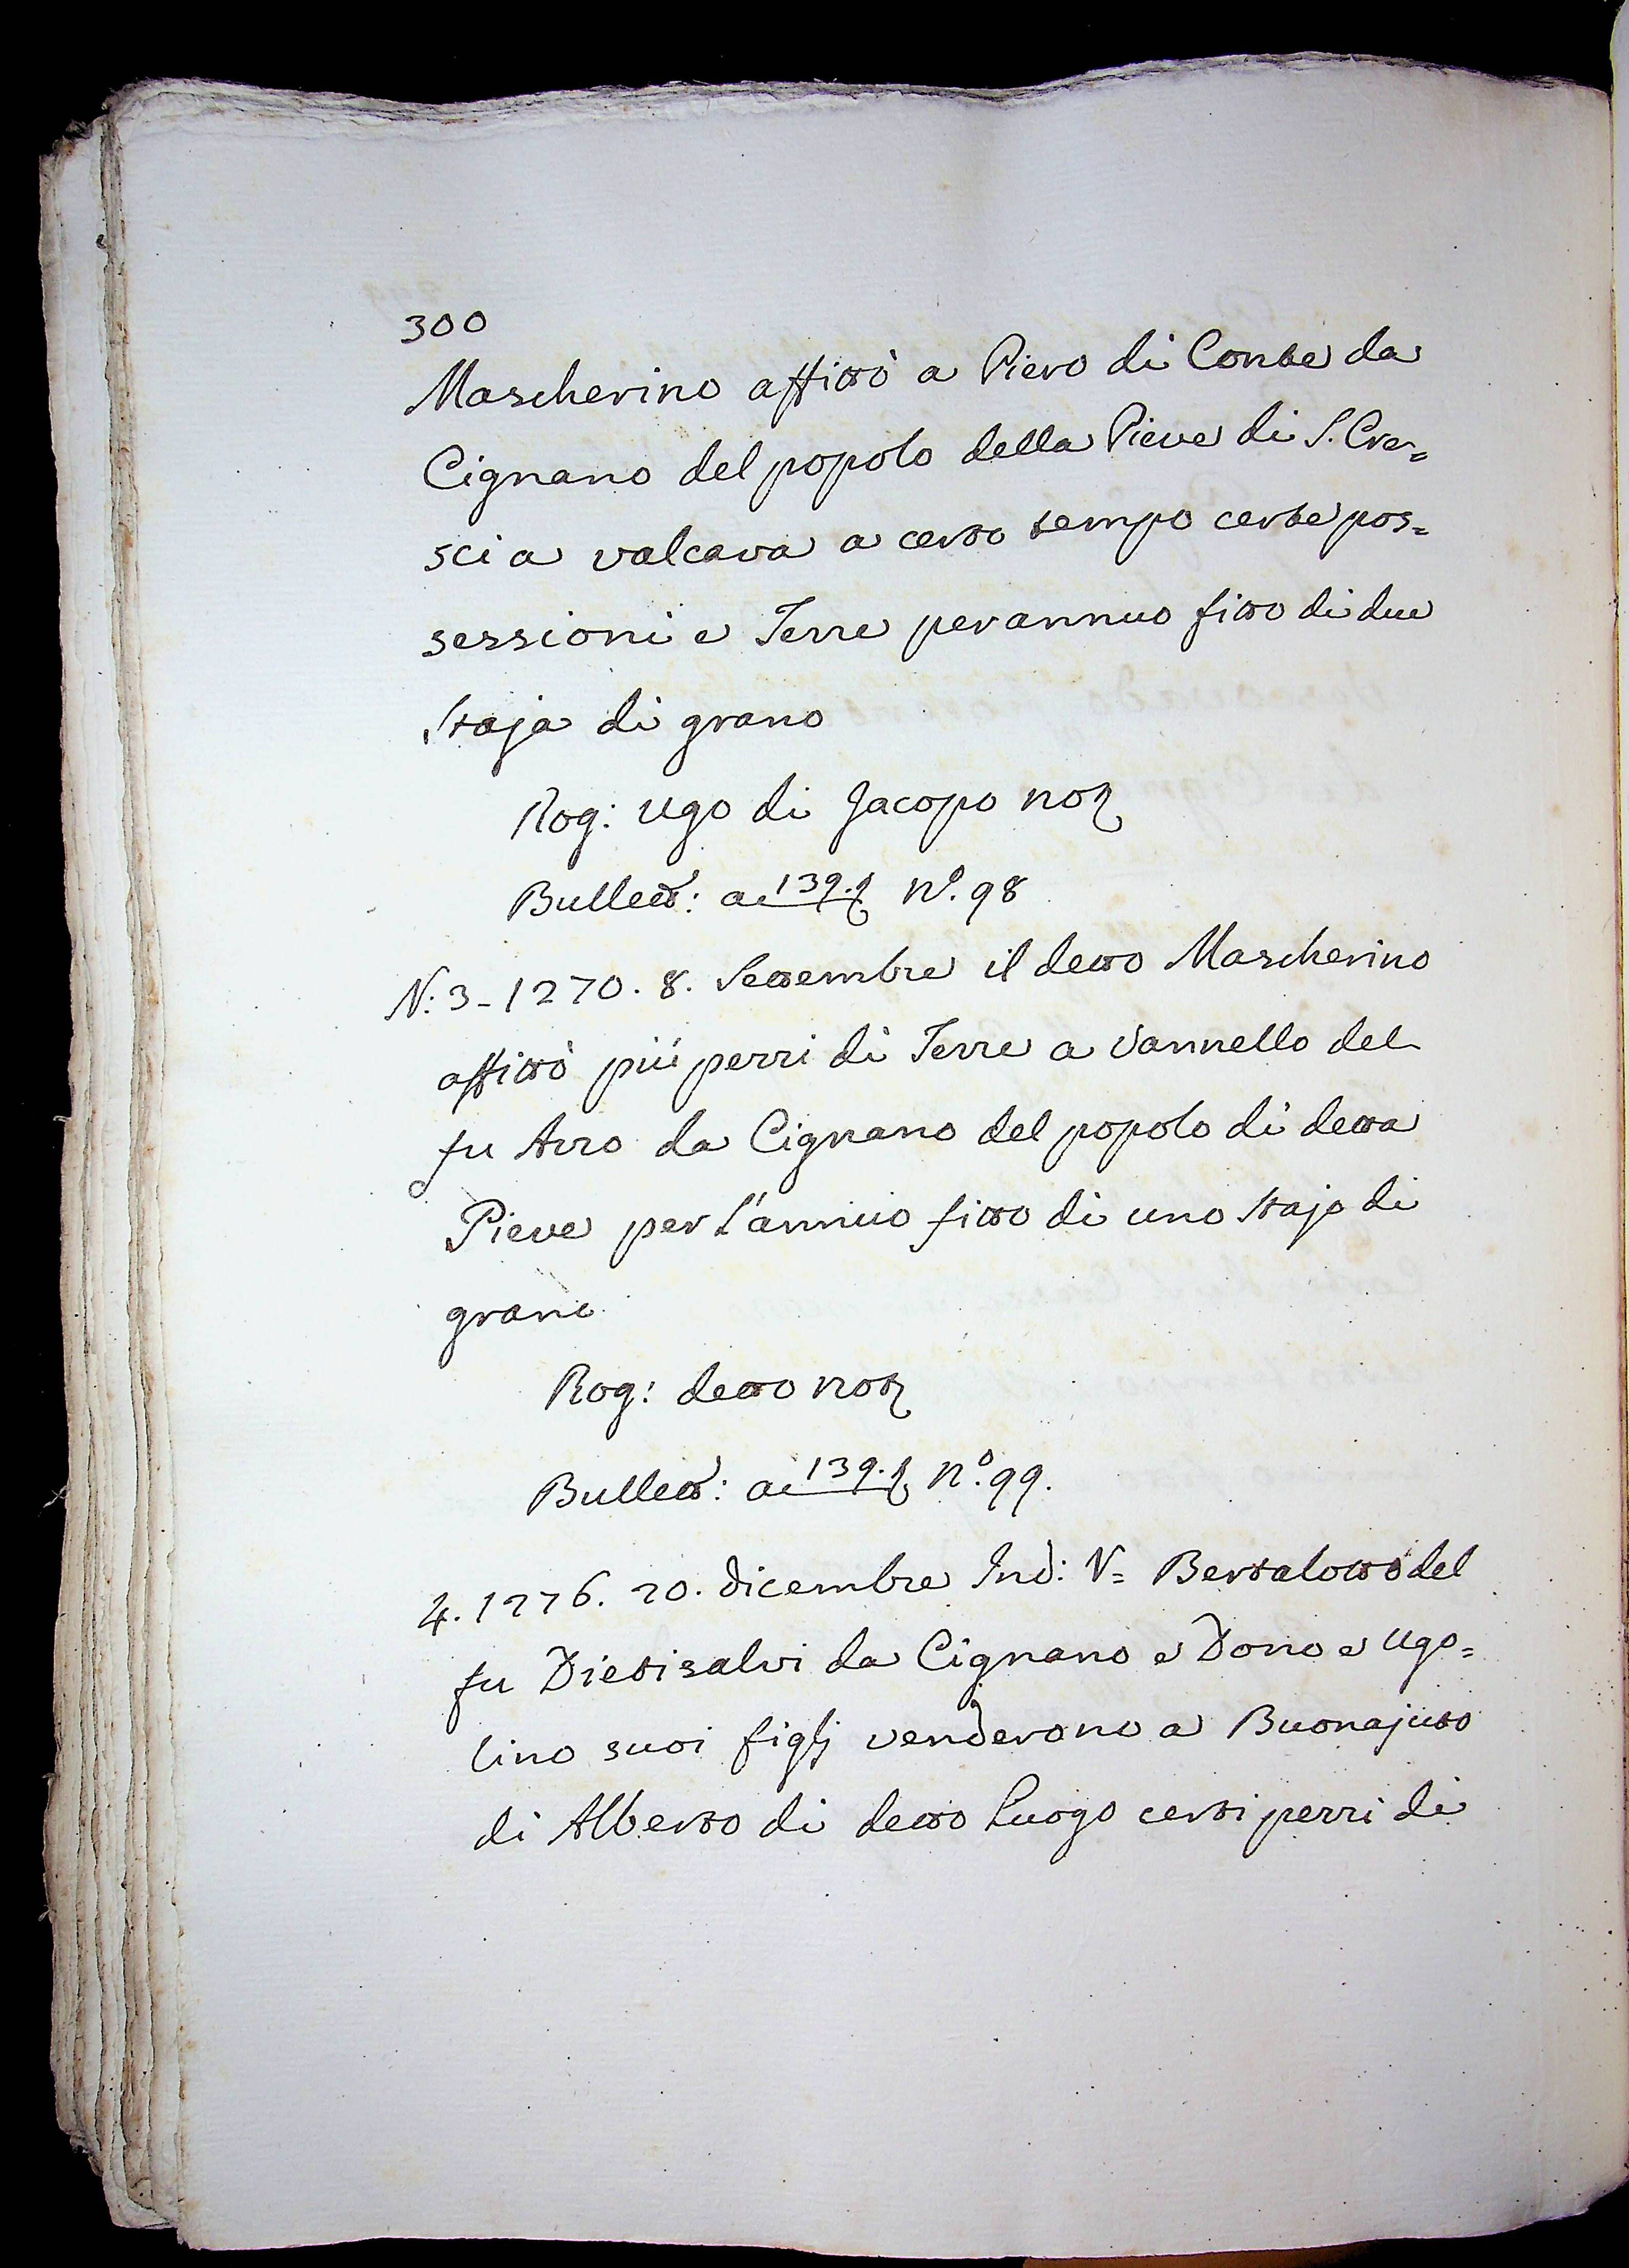 300
Mascherino affittò a Piero di Conte da
Cignano del popolo della Pieve di S. Cre=
sci a valcava a certo tempo certe pos=
sessioni e Terre per annuo fitto di due
Staja di grano
Rog: Ugo di Jacopo not
Bullett: a 139.t N.º 98
N: 3 - 1270. 8. Settembre il detto Mascherino
affittò più pezzi di Terre a Vannello del
fu Azzo da Cignano del popolo di detta
Pieve per l'annuo fitto di uno Stajo di
grano
Rog: detto not
Bullett: a 139.t N.º 99.
4. 1276. 20. Dicembre Ind: V= Bertalotto del
fu Dietisalvi da Cignano e Dono e Ugo=
lino suoi figlj venderono a Buonajuto
di Alberto di detto Luogo certi pezzi di